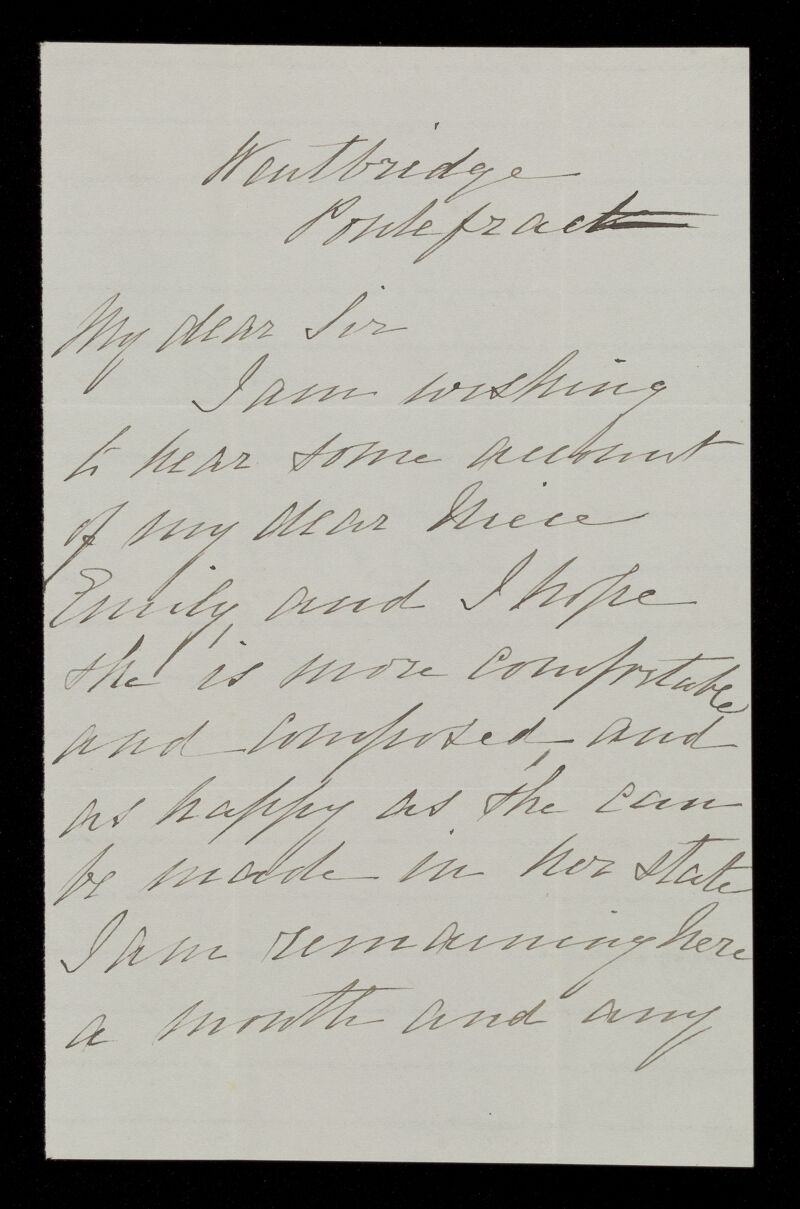 Wentbridge
Pontefract
My dear Sir
I am wishing
to hear some account
of my dear Niece
Emily, and I hope
she is more comfortable
and composed, and
as happy as she can
be made in her state
I am remaining here
a month and any